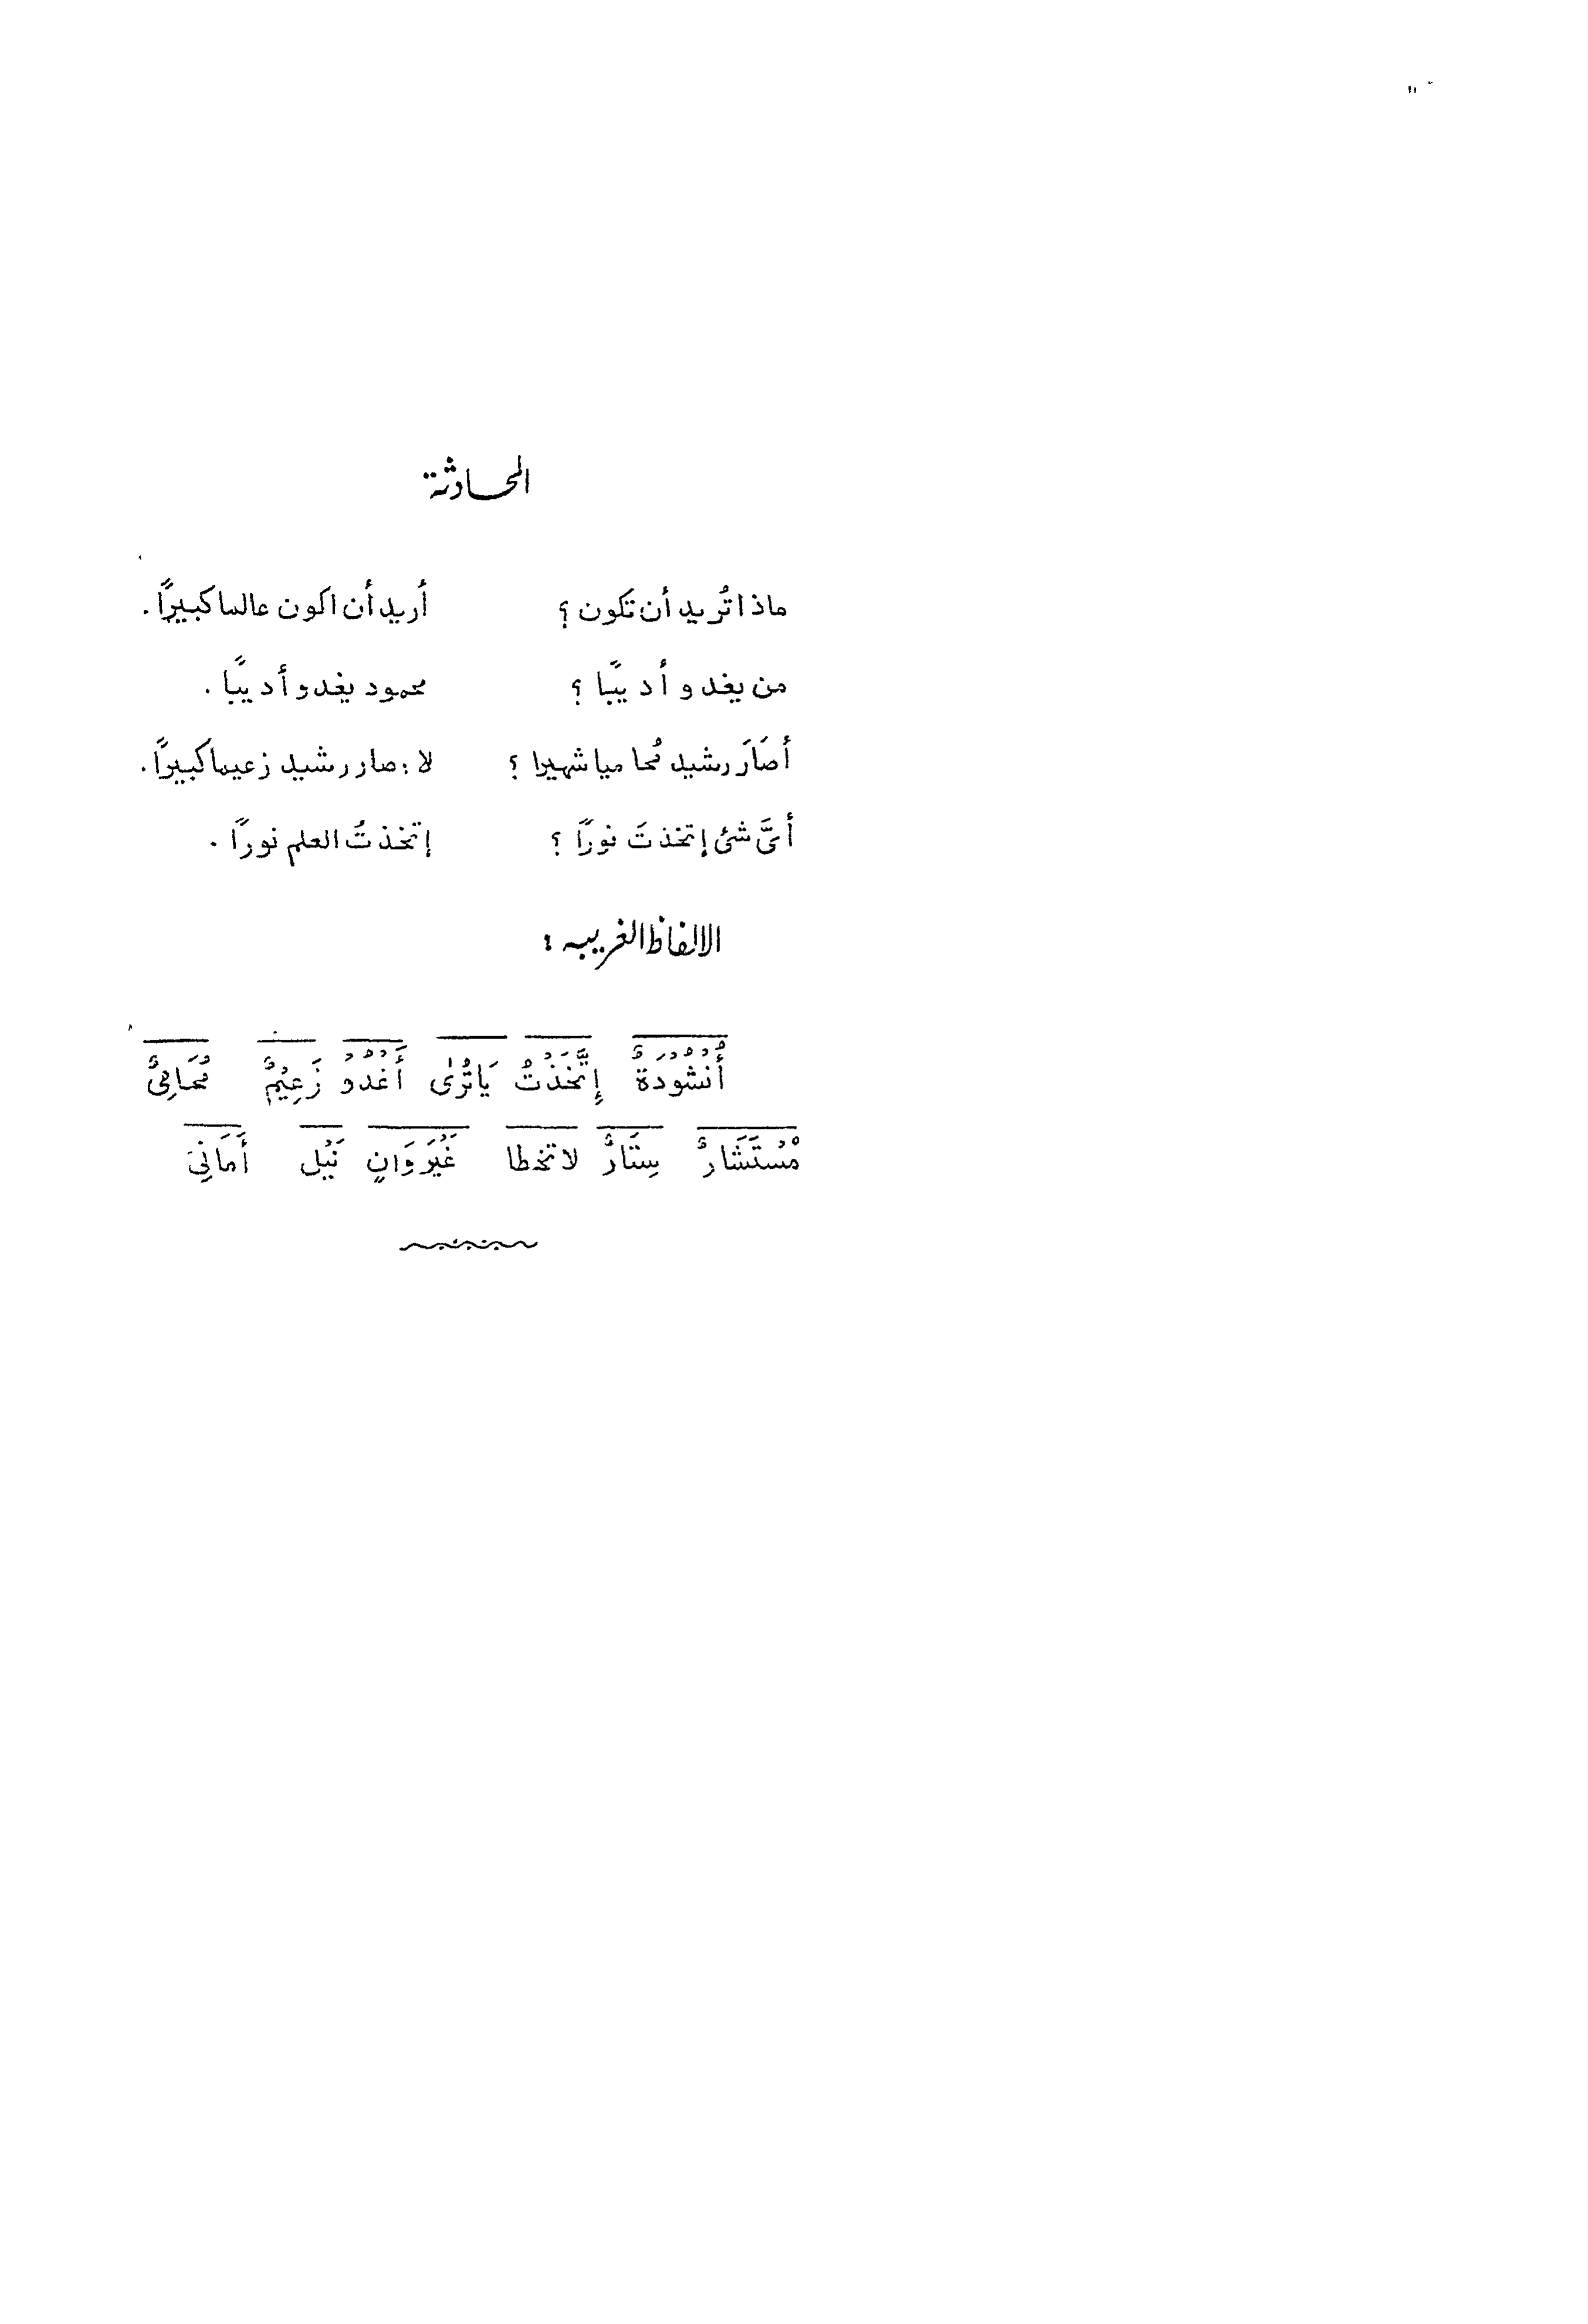 المحادثة
ماذا تُريد أن تَكون ؟ أريد أن اكون عالما كبيرًا .
من يغدو أديبًا ؟ محمود يغدو أديبًا .
أصَارَ رشيد مُحاميا شهيرا ؟ لا : صار رشيد زعيما كبيرًا .
أىَّ شئ إتخذتَ نورًا ؟ إتخذتُ العلم نورًا .
الالفاظ الغريبه :
أُنْشُوْدَةٌ إِتَّخَذْتُ يَاتُرٰى أَغْدُوْ زَعِيْمٌ مُحَامِىٌ
مُسْتَشَارٌ سِتَارٌ لاتخطا غَيْرَ وَانٍ نَيْل أَمَانِىَ